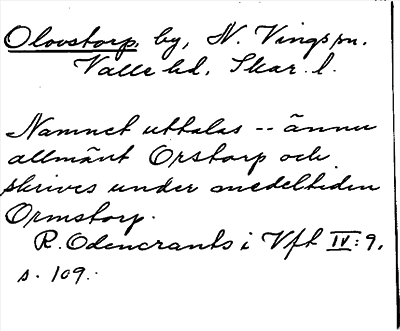 Olovstorp, by, N. Vings sn.
Valle hd, Skar. l.
Namnet uttalas -- ännu
allmänt Orstorp och
skrives under medeltiden
Ormstorp.
R. Odencrants i Vft IV: 9.
s. 109.